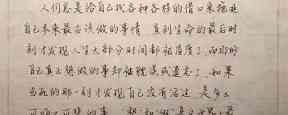 人们总是给自己找各种各样的借口来拖延
自己本来最应该做的事情 直到生命的最后时
刻才发现人生大部分时间都被浪费了 而那些
自己真正想做的事却被耽误或遗忘了 如果
当死的那一刻才发现自己没有活过 是多么
可 的事